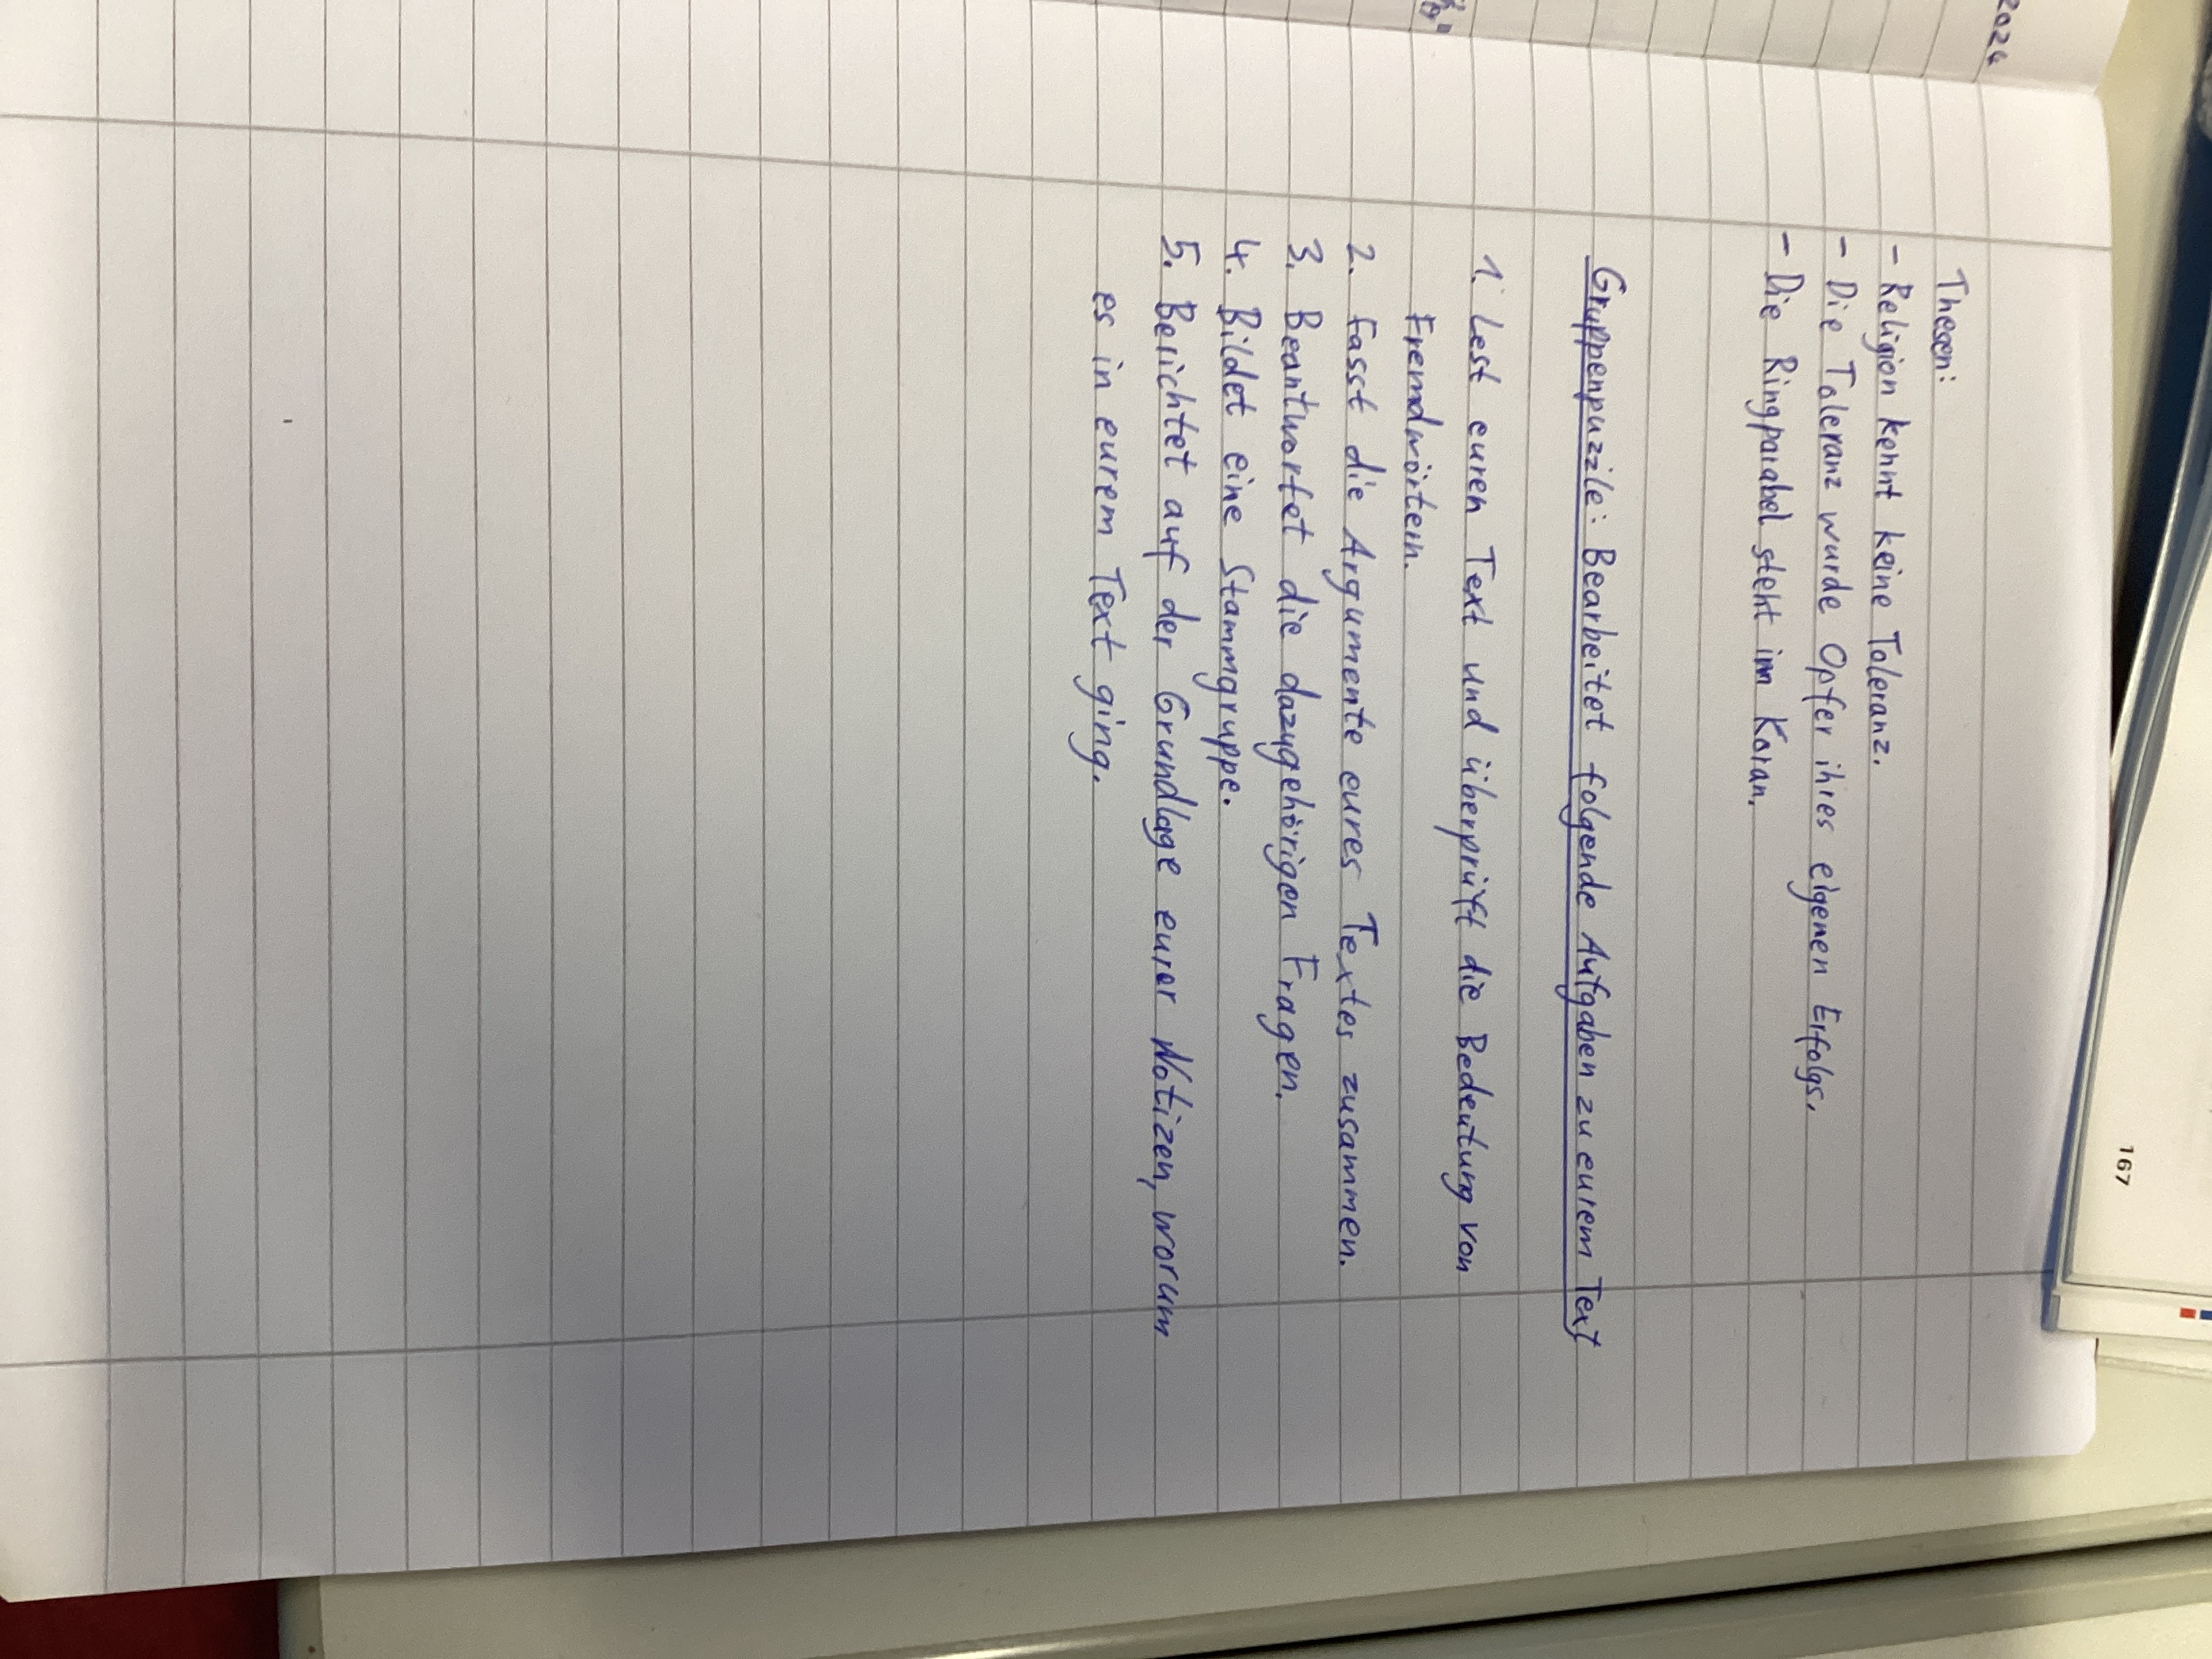 2024
Thesen:
- Religion kennt keine Toleranz.
- Die Toleranz wurde Opfer ihres eigenen Erfolgs.
- Die Ringparabel steht im Koran.
Gruppenpuzzle: Bearbeitet folgende Aufgaben zu eurem Text
1. Lest euren Text und überprüft die Bedeutung von
Fremdwörtern.
2. Fasst die Argumente eures Textes zusammen.
3. Beantwortet die dazugehörigen Fragen.
4. Bildet eine Stammgruppe.
5. Berichtet auf der Grundlage eurer Notizen, worum
es in eurem Text ging.
167